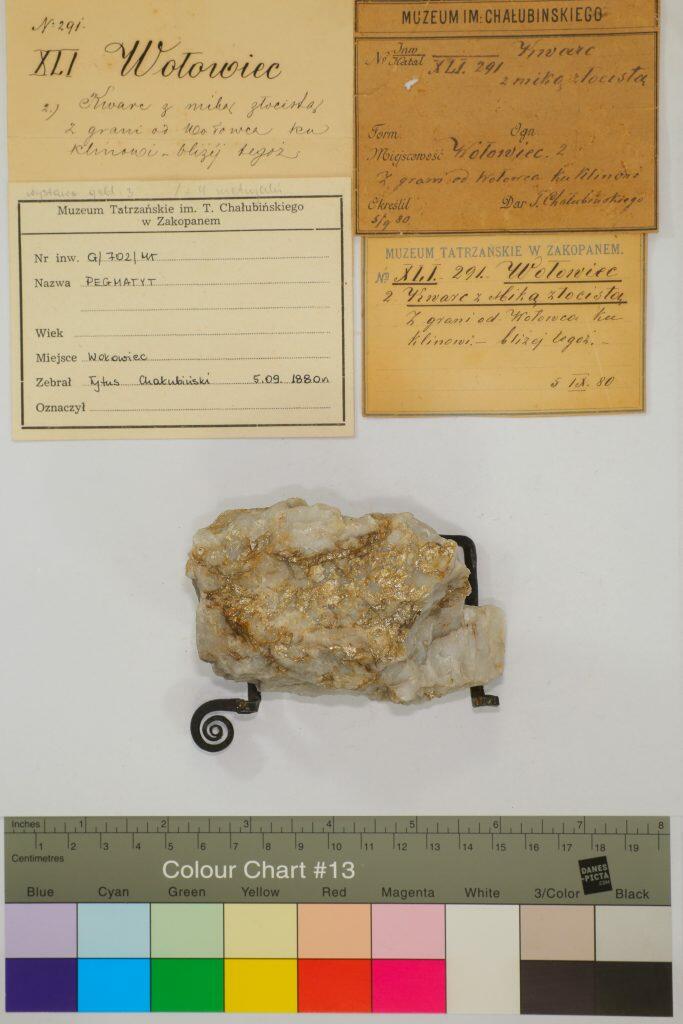 N: 291.
XLI Wołowiec
2.) Kwarc z miką złocistą
z grani od Wołowca ku
klinowi - bliżej tegoż
MUZEUM IM: CHAŁUBIŃSKIEGO
No Inw Katal XLI. 291 Kwarc
z miką złocistą
Form. Ogn
Miejscowość Wołowiec. 2
z grani od Wołowca ku klinowi
Określił Dar T. Chałubińskiego
5/9 80
Muzeum Tatrzańskie im. T. Chałubińskiego
w Zakopanem
Nr inw. G/702/MT
Nazwa PEGMATYT
Wiek
Miejsce Wołowiec
Zebrał Tytus Chałubiński 5.09. 1880r
Oznaczył
MUZEUM TATRZAŃSKIE W ZAKOPANEM.
No XLI. 291. Wołowiec
2 Kwarc z Miką złocistą
z grani od Wołowca ku
klinowi. - bliżej tegoż. -
5 IX. 80
Inches 1 2 3 4 5 6 7 8
Centimetres 1 2 3 4 5 6 7 8 9 10 11 12 13 14 15 16 17 18 19
Colour Chart #13
DANES
-PICTA
.COM
Blue Cyan Green Yellow Red Magenta White 3/Color Black